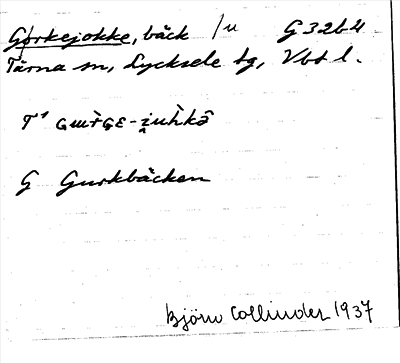 Gorkejokke, bäck /u G 32b4
Tärna sn, Lycksele lg, Vbt l.
G Gurkbäcken
Björn Collinder 1937